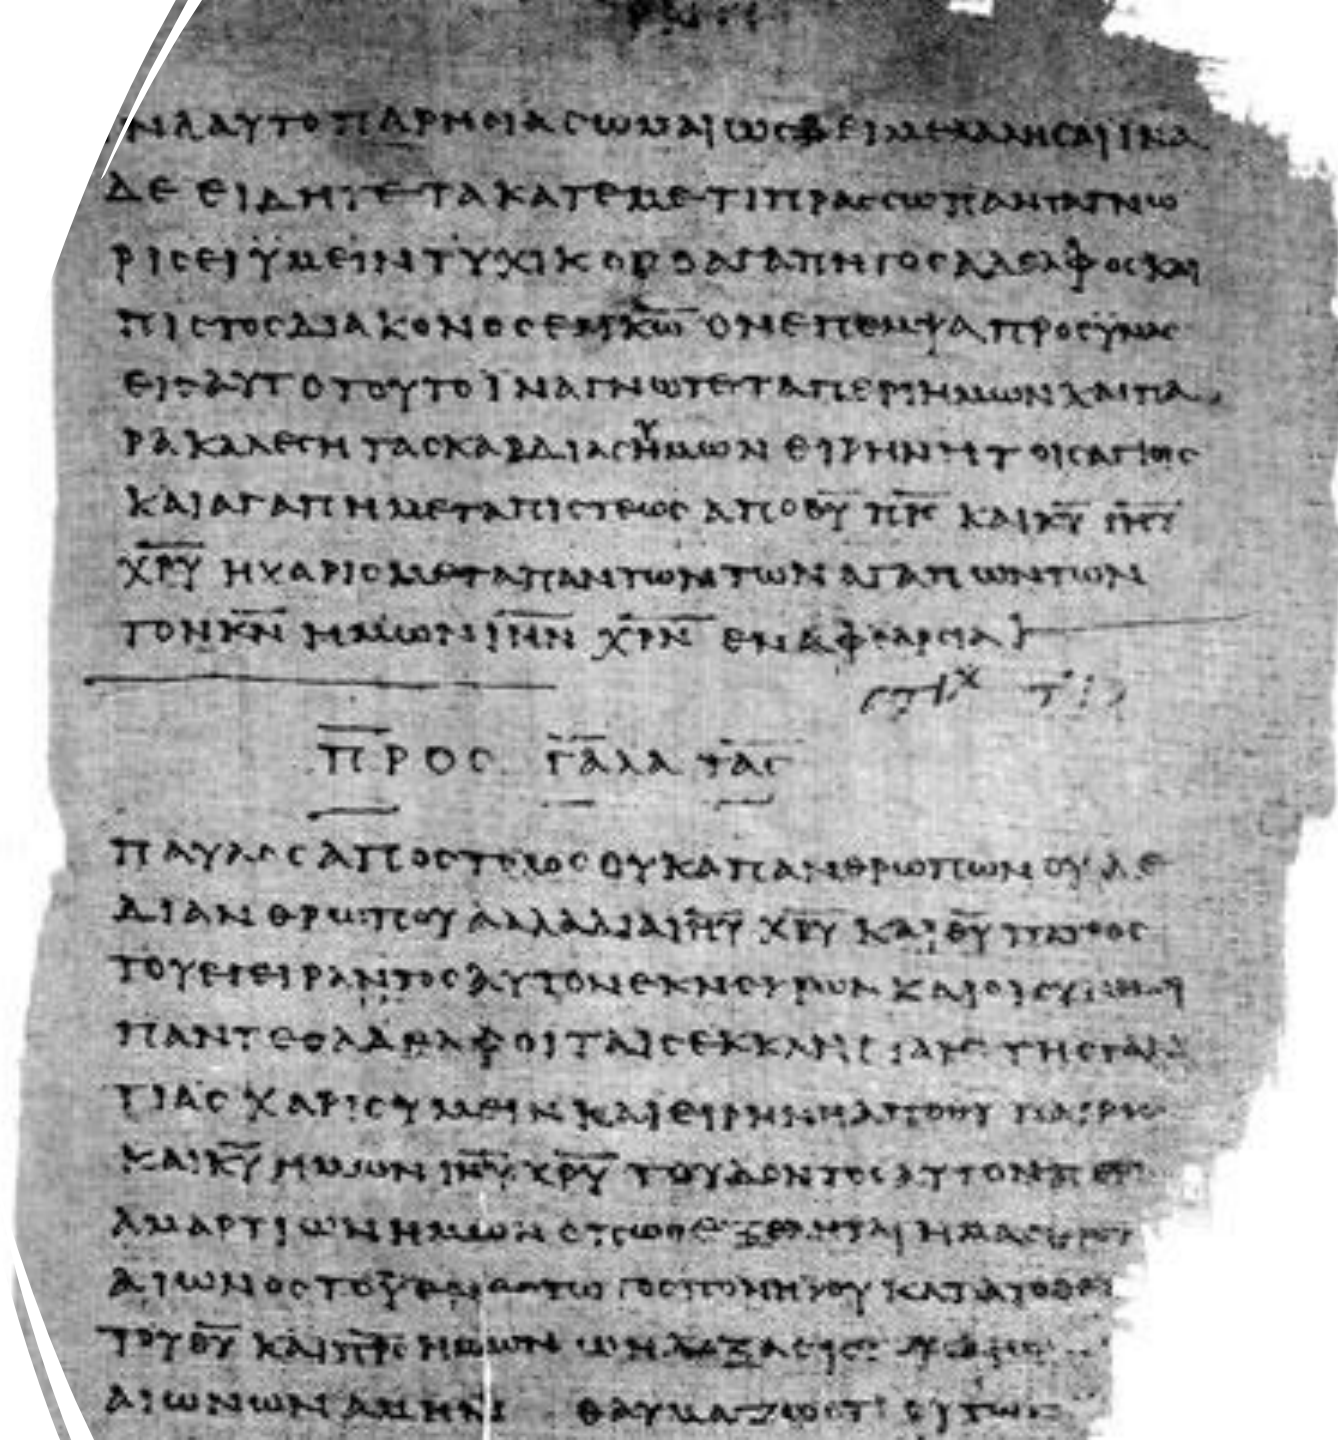 ΕΝ ΑΥΤΩ ΠΑΡΡΗΣΙΑΣΩΜΑΙ ΩΣ ΔΕΙ ΜΕ ΛΑΛΗΣΑΙ ΙΝΑ
ΔΕ ΕΙΔΗΤΕ ΤΑ ΚΑΤ ΕΜΕ ΤΙ ΠΡΑΣΣΩ ΠΑΝΤΑ ΓΝΩ
ΡΙΣΕΙ ΥΜΕΙΝ ΤΥΧΙΚΟΣ Ο ΑΓΑΠΗΤΟΣ ΑΔΕΛΦΟΣ ΚΑΙ
ΠΙΣΤΟΣ ΔΙΑΚΟΝΟΣ ΕΝ Κ̅Ω̅ ΟΝ ΕΠΕΜΨΑ ΠΡΟΣ ΥΜΑΣ
ΕΙΣ ΑΥΤΟ ΤΟΥΤΟ ΙΝΑ ΓΝΩΤΕ ΤΑ ΠΕΡΙ ΗΜΩΝ ΚΑΙ ΠΑ
ΡΑΚΑΛΕΣΗ ΤΑΣ ΚΑΡΔΙΑΣ ΗΜΩΝ ΕΙΡΗΝΗ ΤΟΙΣ ΑΓΙΟΙΣ
ΚΑΙ ΑΓΑΠΗ ΜΕΤΑ ΠΙΣΤΕΩΣ ΑΠΟ Θ̅Υ̅ Π̅Ρ̅Σ̅ ΚΑΙ Κ̅Υ̅ Ι̅Η̅Υ̅
Χ̅Ρ̅Υ̅ Η ΧΑΡΙΣ ΜΕΤΑ ΠΑΝΤΩΝ ΤΩΝ ΑΓΑΠΩΝΤΩΝ
ΤΟΝ Κ̅Ν̅ ΗΜΩΝ Ι̅Η̅Ν̅ Χ̅Ρ̅Ν̅ ΕΝ ΑΦΘΑΡΣΙΑ
ΣΤΙΧ
ΠΡΟΣ ΓΑΛΑΤΑΣ
ΠΑΥΛΟΣ ΑΠΟΣΤΟΛΟΣ ΟΥΚ ΑΠ ΑΝΘΡΩΠΩΝ ΟΥΔΕ
ΔΙ ΑΝΘΡΩΠΟΥ ΑΛΛΑ ΔΙΑ Ι̅Η̅Υ̅ Χ̅Ρ̅Υ̅ ΚΑΙ Θ̅Υ̅ ΠΑΤΡΟΣ
ΤΟΥ ΕΓΕΙΡΑΝΤΟΣ ΑΥΤΟΝ ΕΚ ΝΕΚΡΩΝ ΚΑΙ ΟΙ ΣΥΝ ΕΜΟΙ
ΠΑΝΤΕΣ ΑΔΕΛΦΟΙ ΤΑΙΣ ΕΚΚΛΗΣΙΑΙΣ ΤΗΣ ΓΑΛΑ
ΤΙΑΣ ΧΑΡΙΣ ΥΜΕΙΝ ΚΑΙ ΕΙΡΗΝΗ ΑΠΟ Θ̅Υ̅ ΠΑΤΡΟΣ
ΚΑΙ Κ̅Υ̅ ΗΜΩΝ Ι̅Η̅Υ̅ Χ̅Ρ̅Υ̅ ΤΟΥ ΔΟΝΤΟΣ ΑΥΤΟΝ ΠΕΡΙ
ΑΜΑΡΤΙΩΝ ΗΜΩΝ ΟΠΩΣ ΕΞΕΛΗΤΑΙ ΗΜΑΣ ΕΚ ΤΟΥ
ΑΙΩΝΟΣ ΤΟΥ ΕΝΕΣΤΩΤΟΣ ΠΟΝΗΡΟΥ ΚΑΤΑ ΤΟ ΘΕΛ
ΤΟΥ Θ̅Υ̅ ΚΑΙ Π̅Ρ̅Σ̅ ΗΜΩΝ Ω Η ΔΟΞΑ ΕΙΣ
ΑΙΩΝΩΝ ΑΜΗΝ ΘΑΥΜΑΖΩ ΟΤΙ ΟΥΤΩΣ